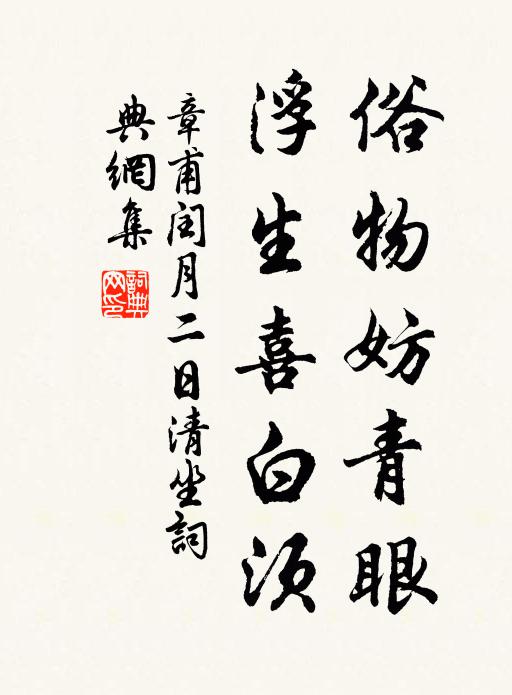 俗物妨青眼
浮生喜白须
章甫闰月二日清坐詞
典網集
詞典網印